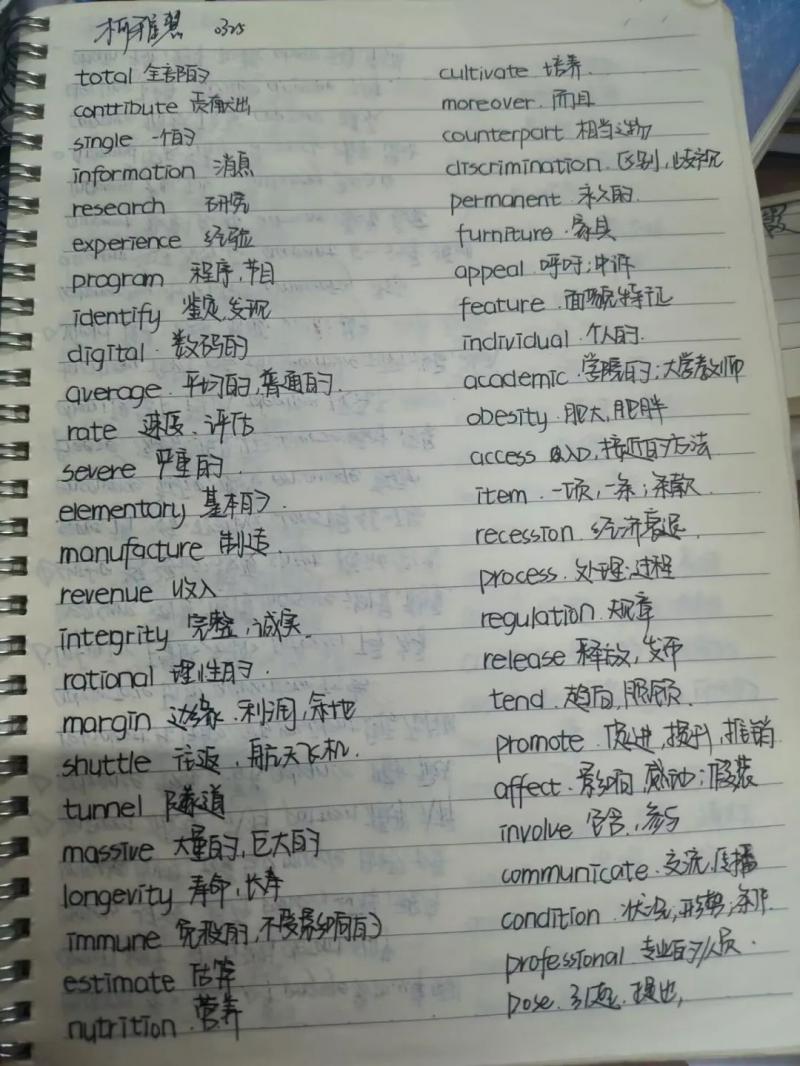 柯雅慧 0325
total 全部的
contribute 贡献出
single 一个的
information 消息
research 研究
experience 经验
program 程序,节目
identify 鉴定,发现
digital 数码的
average 平均的,普通的.
rate 速度、评估
severe 严重的.
elementary 基本的.
manufacture 制造.
revenue 收入
integrity 完整,诚实.
rational 理性的.
margin 边缘.利润,余地
shuttle 往返,航天飞机.
tunnel 隧道
massive 大量的,巨大的
longevity 寿命,长寿
immune 免疫的,不受影响的
estimate 估算
nutrition 营养
cultivate 培养.
moreover.而且
counterpart 相当之物
discrimination.区别,歧视
permanent.永久的.
furniture.家具
appeal.呼吁;申诉
feature.面貌特征
individual.个人的.
academic.学院的;大学教师
obesity.肥大,肥胖
access 进入,接近的方法
item.一项,一条;条款.
recession.经济衰退.
process.处理;过程
regulation.规章
release 释放,发布
tend.趋向,照顾.
promote.促进,提升,推销
affect.影响 感动;假装
involve 包含,参与
communicate.交流,传播
condition.状况,形势;条件.
professional 专业的/人员.
pose.引起.提出,